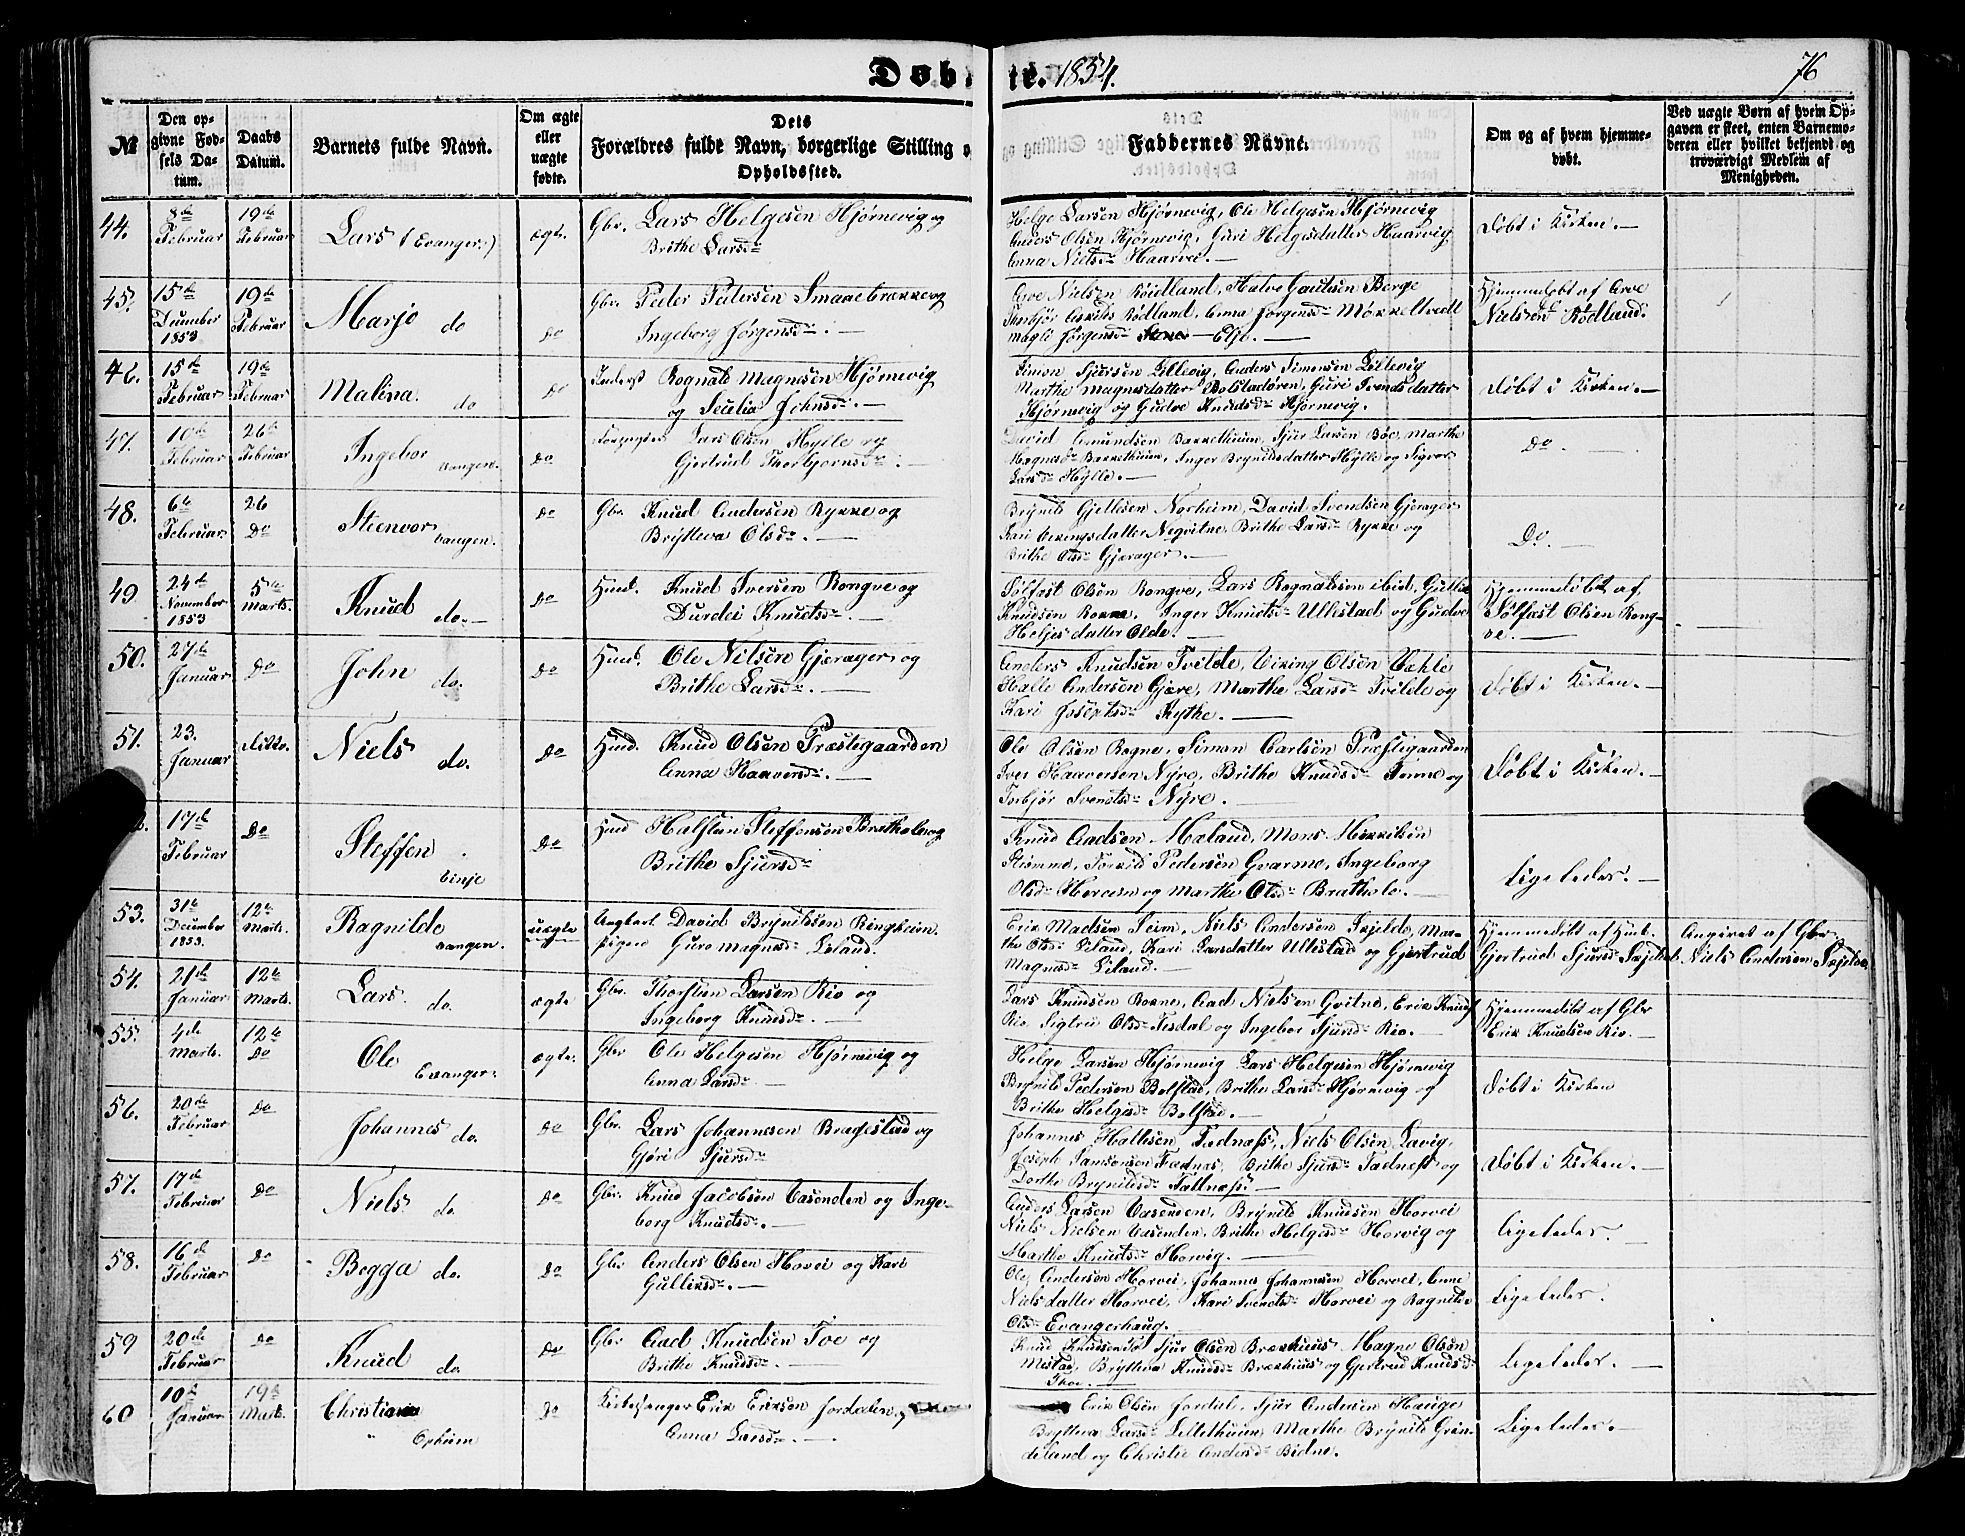 Døbte. 1854.
76
№
Den opgivne Fødsels Datum.
Daabs Datum.
Barnets fulde Navn.
Om ægte eller uægte fødte.
Dets Forældres fulde Navn, borgerlige Stilling o
Opholdssted.
Faddernes Navne.
Om og af hvem hjemmedøbt.
Ved uægte Børn af hvem Opgaven er skeet, enten Barnemoderen eller hvilket bekjendt og troværdigt Medlem af Menigheden.
44. 8de Februar 19de Februar Lars (Evanger.) ægte. Gbr. Lars Helgesen Hjørnevig og
Brithe Larsdr
Helge Larsen Hjørnevig, Ole Helgesen Hjørnevig
Anders Olsen Hjørnevig, Guri Helgesdatter Haarvig
Anna Nielsdr Haarvei. Døbt i Kirken.
45. 15de December 1853 19de Februar Marjo do Do Gbr Peder Pedersen Smaaebrekke og
Ingeborg Jørgensdr.
Arve Nielsen Røidland, Halve Gautsen Berge
Thorbjør Rødland, Anna Jørgensdr Møkkeltvedt
Magli Jørgensdr Elje.
Hjemmedøbt af Arve
Nielsen Rødland.
46. 15de Februar 19de Februar Malina do Do Inderst Rognald Magnesen Hjørnevig
og Secelia Johnsdr.
Simon Sjursen Lillevig, Anders Simonsen Lillevig
Marthe Magnesdatter Bolstadøren, Guri Svendsdatter
Hjørnevig og Gudve Knudsdr Hjørnevig. Døbt i Kirken.
47. 10de Februar 26de Februar Ingebor Vangen. Do Lars Olsen Hylle og
Gjertrud Thorbjørnsdr.
David Amundsen Bakkethuun, Sjur Larsen Bøe, Marthe
Magnesdr Bakkethuun, Inger Brynildsdatter Hylle og Sigvor
Larsdr Hylle. Do.
48. 6te Februar 26 Do Steenvor Vangen. Do Gbr Knud Andersen Rykke og
Brytteva Olsdr.
Brynild Gjellesen Norheim, David Svendsen Gjerager
Kari Vikingsdatter Neqvitne, Brithe Larsdr Rykke og
Brithe Olsdr Gjerager. Do.
49. 24de November 1853 5te Marts. Knud do. Do Huusd. Knud Iversen Rongve og
Durdei Knudsdr.
Sølfæst Olsen Rongve, Lars Rognaldsen ibid, Gullie
Knudsen Rokne, Inger Knudsdr Ullestad og Gudve
Helgesdatter Olde.
Hjemmedøbt af
Sølfæst Olsen Rongve.
50. 27de Januar Do John do. Do Huusd. Ole Nilsen Gjerager og
Brithe Larsdr.
Anders Knudsen Tvilde, Viking Olsen Væhle
Halle Andersen Gjære, Marthe Larsdr Tvilde og
Kari Josephsdr Kythe. Døbt i Kirken.
51. 23. Januar ditto. Niels do. Do Huusd. Knud Olsen Præstegaarden
Anna Haaversdr.
Ole Olsen Rogne, Simon Carlsen Præstegaarden
Iver Haaversen Nyre, Brithe Knudsdr Finne og
Torbjør Svendsdr Nyre. Døbt i Kirken.
17de Februar Do Steffen Vinje Do Husd Halsteen Steffensen Bratthole og
Brithe Sjursdr
Knud Aadsen Mæland, Mons Mikkelsen
Strømme, Torkild Pedersen Gvarme, Ingeborg
Olsdr Hereim og Marthe Olsdr Bratthole. Ligeledes.
53. 31te December 1853. 12te Marts. Ragnilde Vangen. uægte Ungkarl David Brynildsen Ringheim.
pigen Guro Magnesdr Leland.
Erik Madsen Seim, Niels Andersen Skjelde, Marthe
Olsdr Leland, Kari Larsdatter Ullestad og Gjertrud
Magnesdr Leland.
Hjemmedøbt af Huusk.
Gjertrud Sjursdr Skjelde.
Angivet af Gbr.
Niels Andersen Skjelde
54. 21de Januar 12te Marts. Lars do. ægte Gbr. Thorstein Larsen Rio og
Ingeborg Knudsdr.
Lars Knudsen Rokne, Aad Nielsen Gvitne, Erik Knuds
Rio, Sigtru Olsdr Tesdal og Ingebor Sjursdr Rio.
Hjemmedøbt af Gbr
Erik Knudsen Rio.
55. 4de Marts. 12te Do Ole Evanger. ægte. Gbr Ole Helgesen Hjørnevig og
Anna Larsdr
Helge Larsen Hjørnevig Lars Helgesen Hjørnevig
Brynild Pedersen Bolstad, Brithe Larsdr Hjørnevig og
Brithe Helgesdr Bolstad. Døbt i Kirken
56. 20de Februar Do Johannes do. Do Gbr. Lars Johannesen Bragestad og
Gjøri Sjursdr
Johannes Hallesen Fadnæss, Niels Olsen Lavig,
Joseph Samsonsen Fadnes, Brithe Sjursdr Fadness og
Dorthe Brynildsdr Fattnæss. Døbt i Kirken.
57. 17de Februar Do Niels do. Do Gbr. Knud Jacobsen Vasenden og Ingeborg
Knudsdr.
Anders Larsen Vasenden, Brynild Knudsen Horvei
Niels Nielsen Vasenden, Brithe Helgesdr Horvig og
Marthe Knudsdr Horvig. ligeledes.
58. 16de Februar Do Begga do. Do Gbr Anders Olsen Horvei og Kari
Gulliksdr.
Ole Andersen Horvei, Johannes Johannesen Horvei, Anne
Nielsdatter Horvei, Kari Svendsdr Horvei og Ragnilde
Olsdr Evangerhaug. Ligeledes.
59 20de Februar Do Knud do. Do Gbr Aad Knudsen Toe og
Brithe Knudsdr.
Knud Knudsen To Sjur Olsen Brækhuus, Magne Olsen
Mestad, Bryttera Knudsdr Brækhuus og Gjertrud Knudsdr
Thoe. Ligeledes.
60 10de Januar 19de Marts. Christi Opheim Do Kirkesanger Erik Eriksen Jordalen,
Anna Larsdr.
Erik Olsen Jordal, Sjur Andersen Hauge
Bryttera Larsdr Lillethuun, Marthe Brynilds Grindeland
og Christie Andersdr Bidne. Ligeledes.